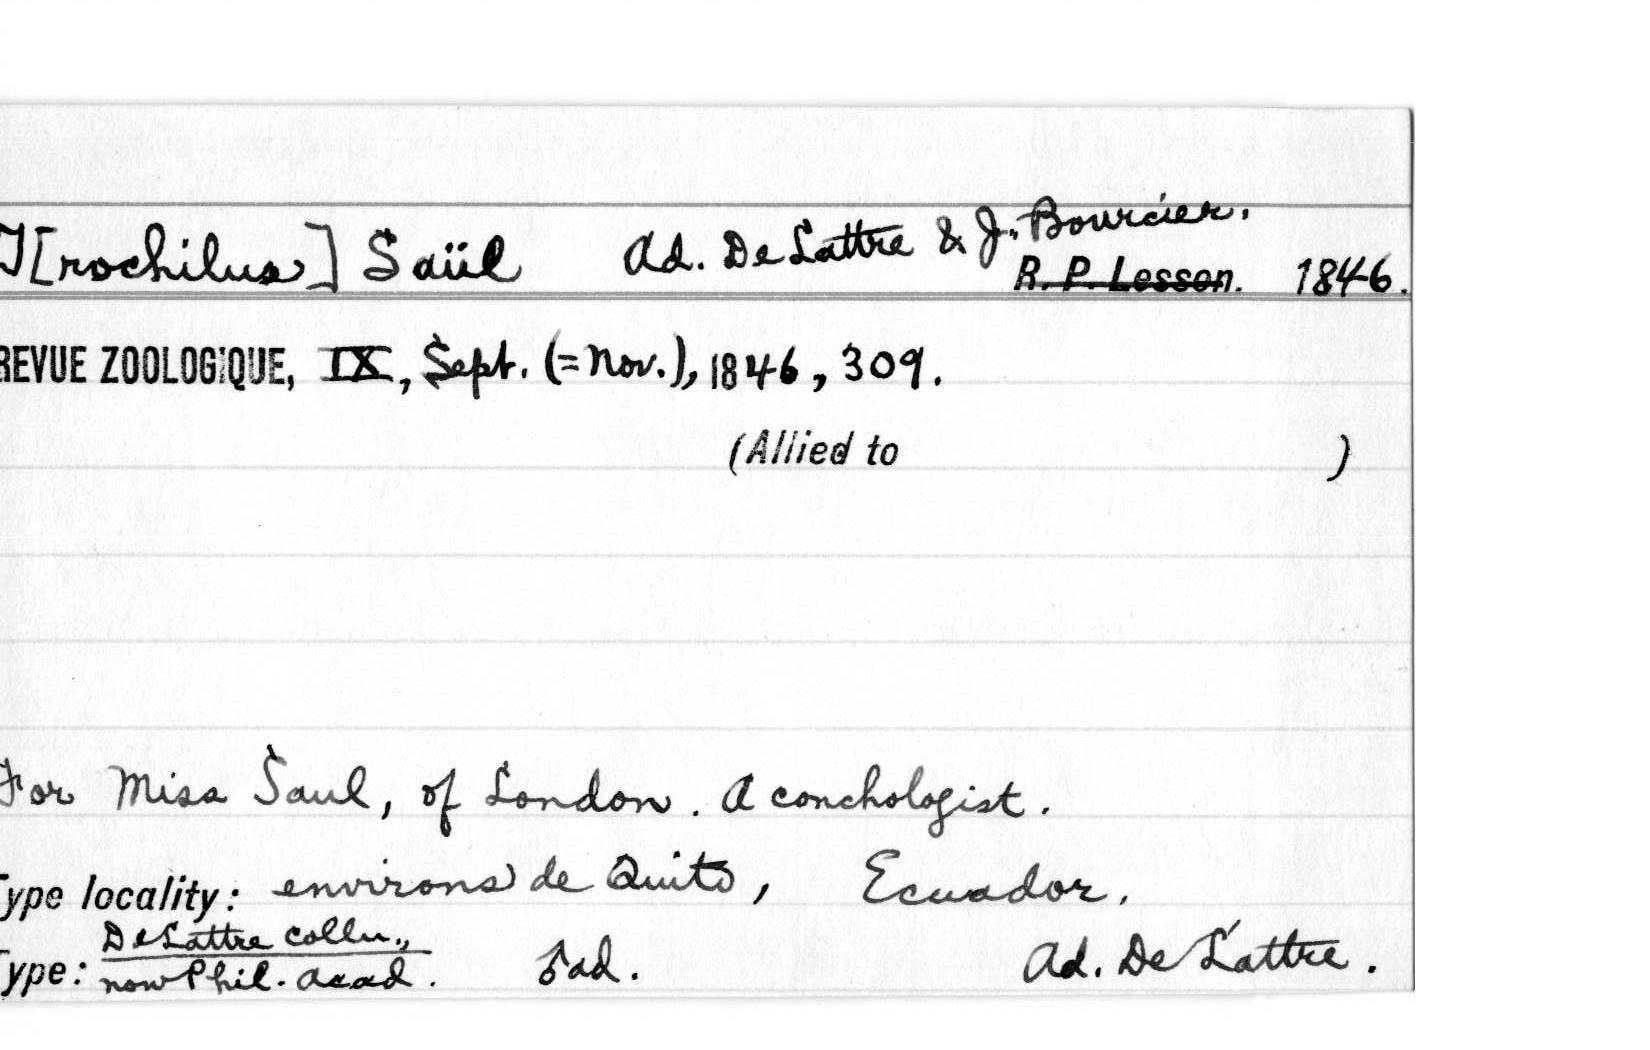 T[rochilus] Saül Ad. DeLattre & J. Bourcier.
R. P. Lesson. 1846.
REVUE ZOOLOGIQUE, IX, Sept. (=Nov.), 1846, 309.
(Allied to )
For Miss Saul, of London. A conchologist.
Type locality: environs de Quito, Ecuador.
DeLattre colln.,
Type: now Phil. Acad. ad. Ad. De Lattre.